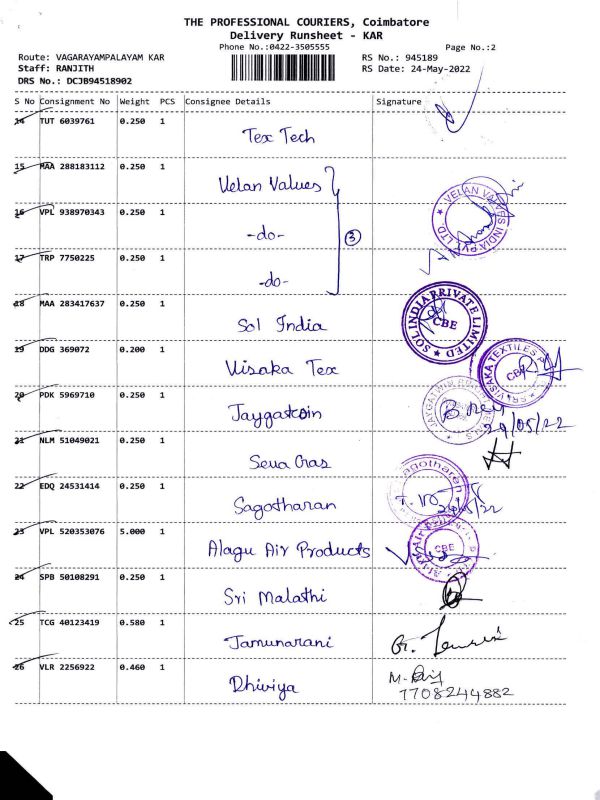 THE PROFESSIONAL COURIERS, Coimbatore
Delivery Runsheet - KAR
Phone No.:0422-3505555 Page No.:2
Route: VAGARAYAMPALAYAM KAR RS No.: 945189
Staff: RANJITH RS Date: 24-May-2022
DRS No.: DCJB94518902
S No Consignment No Weight PCS Consignee Details Signature
14 TUT 6039761 0.250 1
Tex Tech
15 MAA 288183112 0.250 1
Velan Values
16 VPL 938970343 0.250 1
-do- 3
VELAN VALVES INDIA PVT. LTD.
17 TRP 7750225 0.250 1
-do-
18 MAA 283417637 0.250 1
Sol India
SOL INDIA PRIVATE LIMITED
CBE
19 DDG 369072 0.200 1
Visaka Tex
SRI VISAKA TEXTILES
CBE
20 PDK 5969710 0.250 1
Jaygatcoin
29/05/22
21 NLM 51049021 0.250 1
Seua Gras
22 EDQ 24531414 0.250 1
Sagotharan
Sagotharan
23 VPL 520353076 5.000 1
Alagu Air Products
CBE
24 SPB 50108291 0.250 1
Sri Malathi
25 TCG 40123419 0.580 1
Jamunarani
26 VLR 2256922 0.460 1
Dhiviya
7708244882